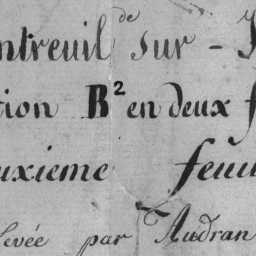 ntreuil de sur -
tion B² en deux f
uxieme feui
levée par Audran